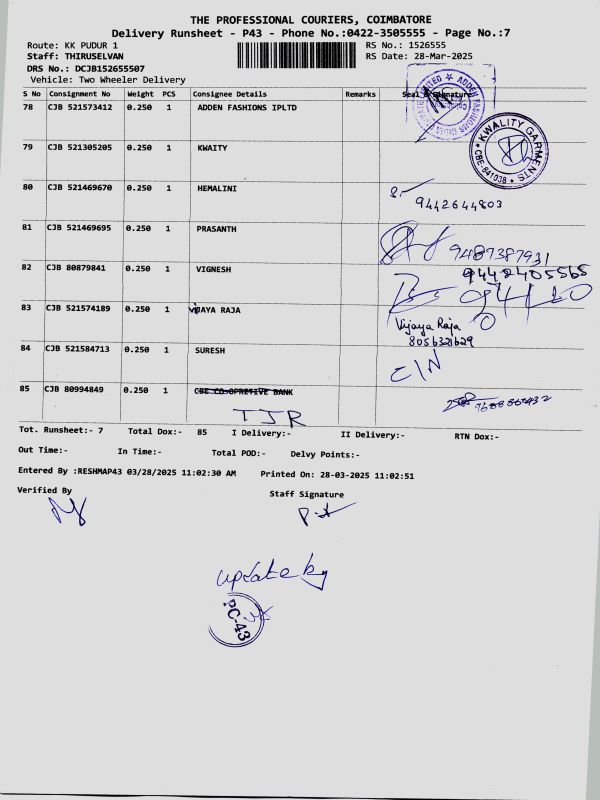 THE PROFESSIONAL COURIERS, COIMBATORE
Delivery Runsheet - P43 - Phone No.:0422-3505555 - Page No.:7
Route: KK PUDUR 1 RS No.: 1526555
Staff: THIRUSELVAN RS Date: 28-Mar-2025
DRS No.: DCJB152655507
Vehicle: Two Wheeler Delivery
S No Consignment No Weight PCS Consignee Details Remarks Seal & Signature
78 CJB 521573412 0.250 1 ADDEN FASHIONS IPLTD
79 CJB 521305205 0.250 1 KWAITY
KWALITY GARMENTS * CBE-641038 *
80 CJB 521469670 0.250 1 HEMALINI
9442644803
81 CJB 521469695 0.250 1 PRASANTH
9487387931
82 CJB 80879841 0.250 1 VIGNESH
9442405565
83 CJB 521574189 0.250 1 VIJAYA RAJA
Vijaya Raja
8056321629
84 CJB 521584713 0.250 1 SURESH
C/N
85 CJB 80994849 0.250 1 CBE CO-OPRETIVE BANK
TJR
Tot. Runsheet:- 7 Total Dox:- 85 I Delivery:- II Delivery:- RTN Dox:-
Out Time:- In Time:- Total POD:- Delvy Points:-
Entered By :RESHMAP43 03/28/2025 11:02:30 AM Printed On: 28-03-2025 11:02:51
Verified By Staff Signature
update by
PC-43